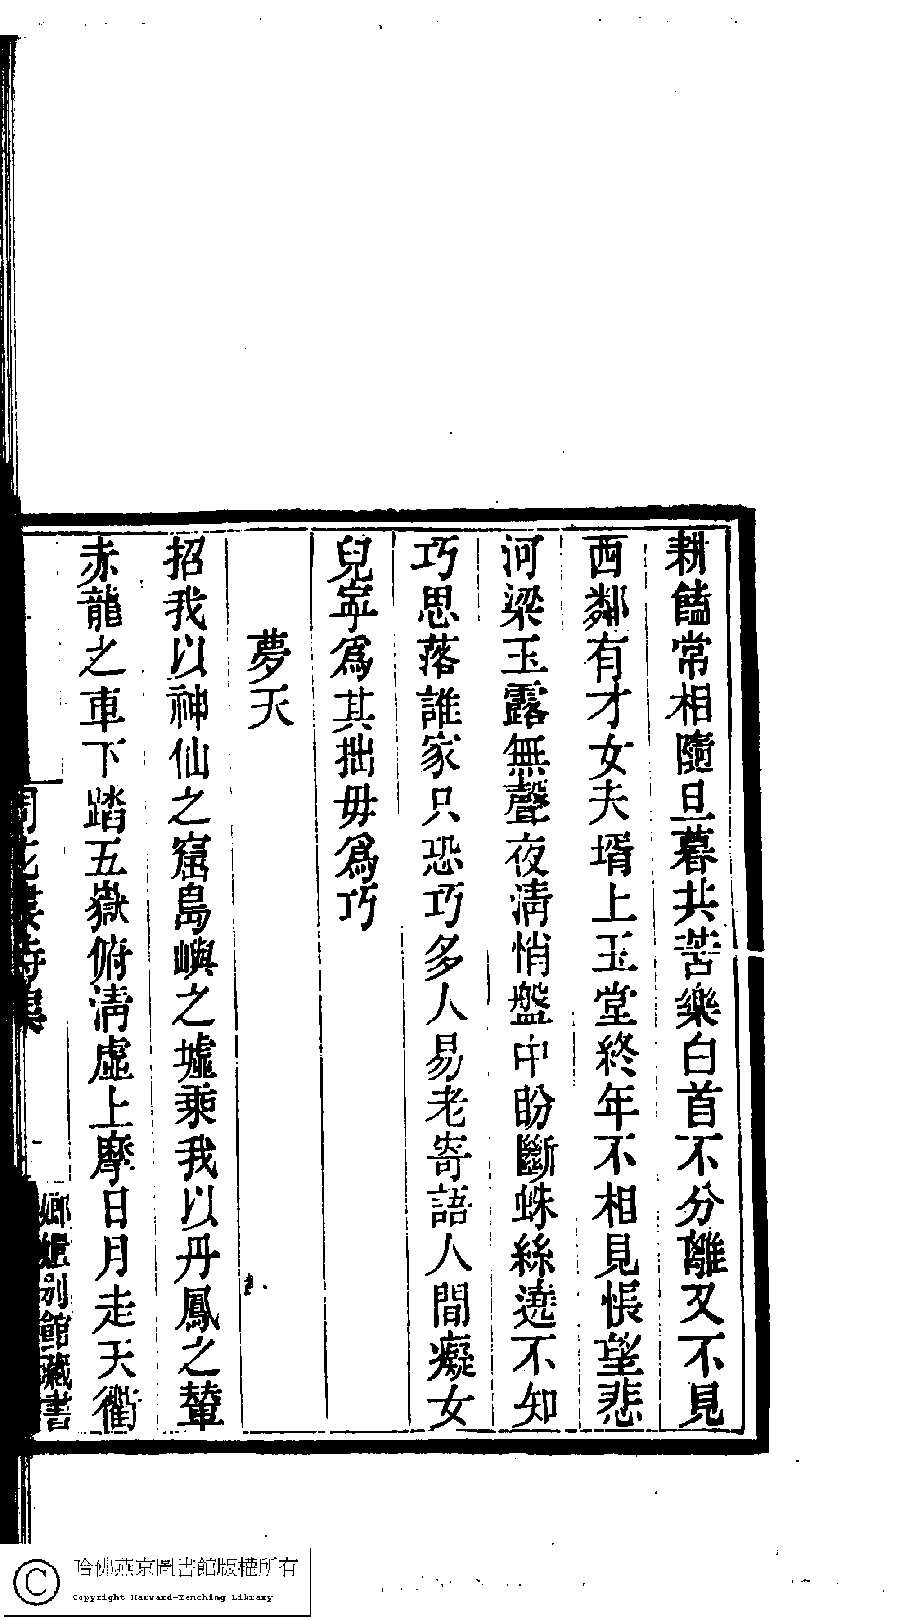 耕饁常相隨旦暮共苦樂白首不分離又不見
西鄰有才女夫壻上玉堂終年不相見悵望悲
河梁玉露無聲夜清悄盤中盼斷蛛絲遶不知
巧思落誰家只恐巧多人易老寄語人間癡女
兒寧爲其拙毋爲巧
夢天
招我以神仙之窟島嶼之墟乘我以丹鳳之輦
赤龍之車下踏五嶽俯清虛上摩日月走天衢
詩集
嫏嬛別館藏書
哈佛燕京圖書館版權所有
Copyright Harvard-Yenching Library